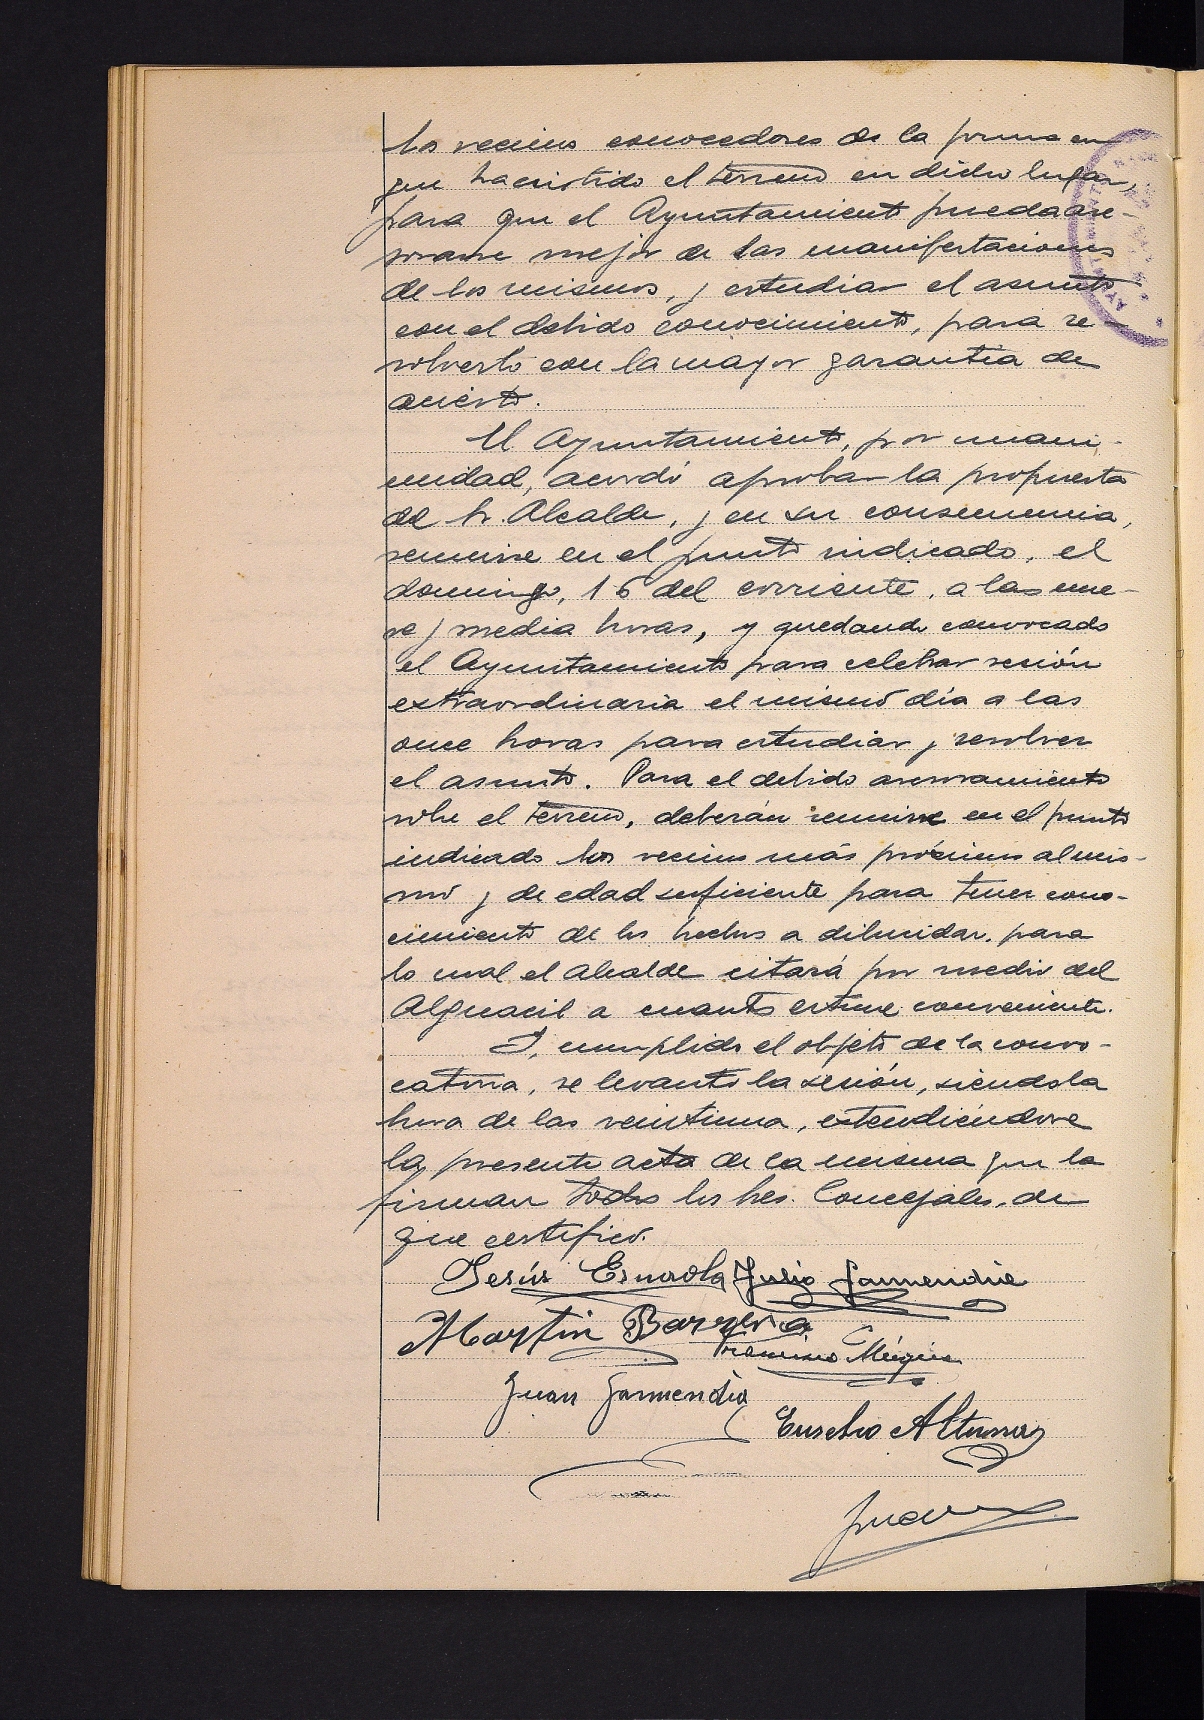 los vecinos conocedores de la forma en
que ha existido el terreno en dicho lugar,
para que el Ayuntamiento pueda ase-
sorarse mejor de las manifestaciones
de los mismos, y estudiar el asunto
con el debido conocimiento, para re-
solverlo con la mayor garantía de
acierto.
El Ayuntamiento, por unani-
midad, acordó aprobar la propuesta
del Sr. Alcalde, y en su consecuencia,
reunirse en el punto indicado, el
domingo, 16 del corriente, a las nue-
ve y media horas, y quedando convocado
el Ayuntamiento para celebrar sesión
extraordinaria el mismo día a las
once horas para estudiar y resolver
el asunto. Para el debido asesoramiento
sobre el terreno, deberán reunirse en el punto
indicado los vecinos más próximos al mis-
mo y de edad suficiente para tener cono-
cimiento de los hechos a dilucidar, para
lo cual el Alcalde citará por medio del
Alguacil a cuantos estime conveniente.
Y, cumplido el objeto de la convo-
catoria, se levantó la sesión, siendo la
hora de las veintiuna, extendiéndose
la presente acta de la misma que la
firman todos los Sres. Concejales, de
que certifico.
Jesús Esnaola Julio Garmendia
Martin Barrena
Francisco Múgica
Juan Garmendia
Eusebio Altuna
AYUNTAMIENTO